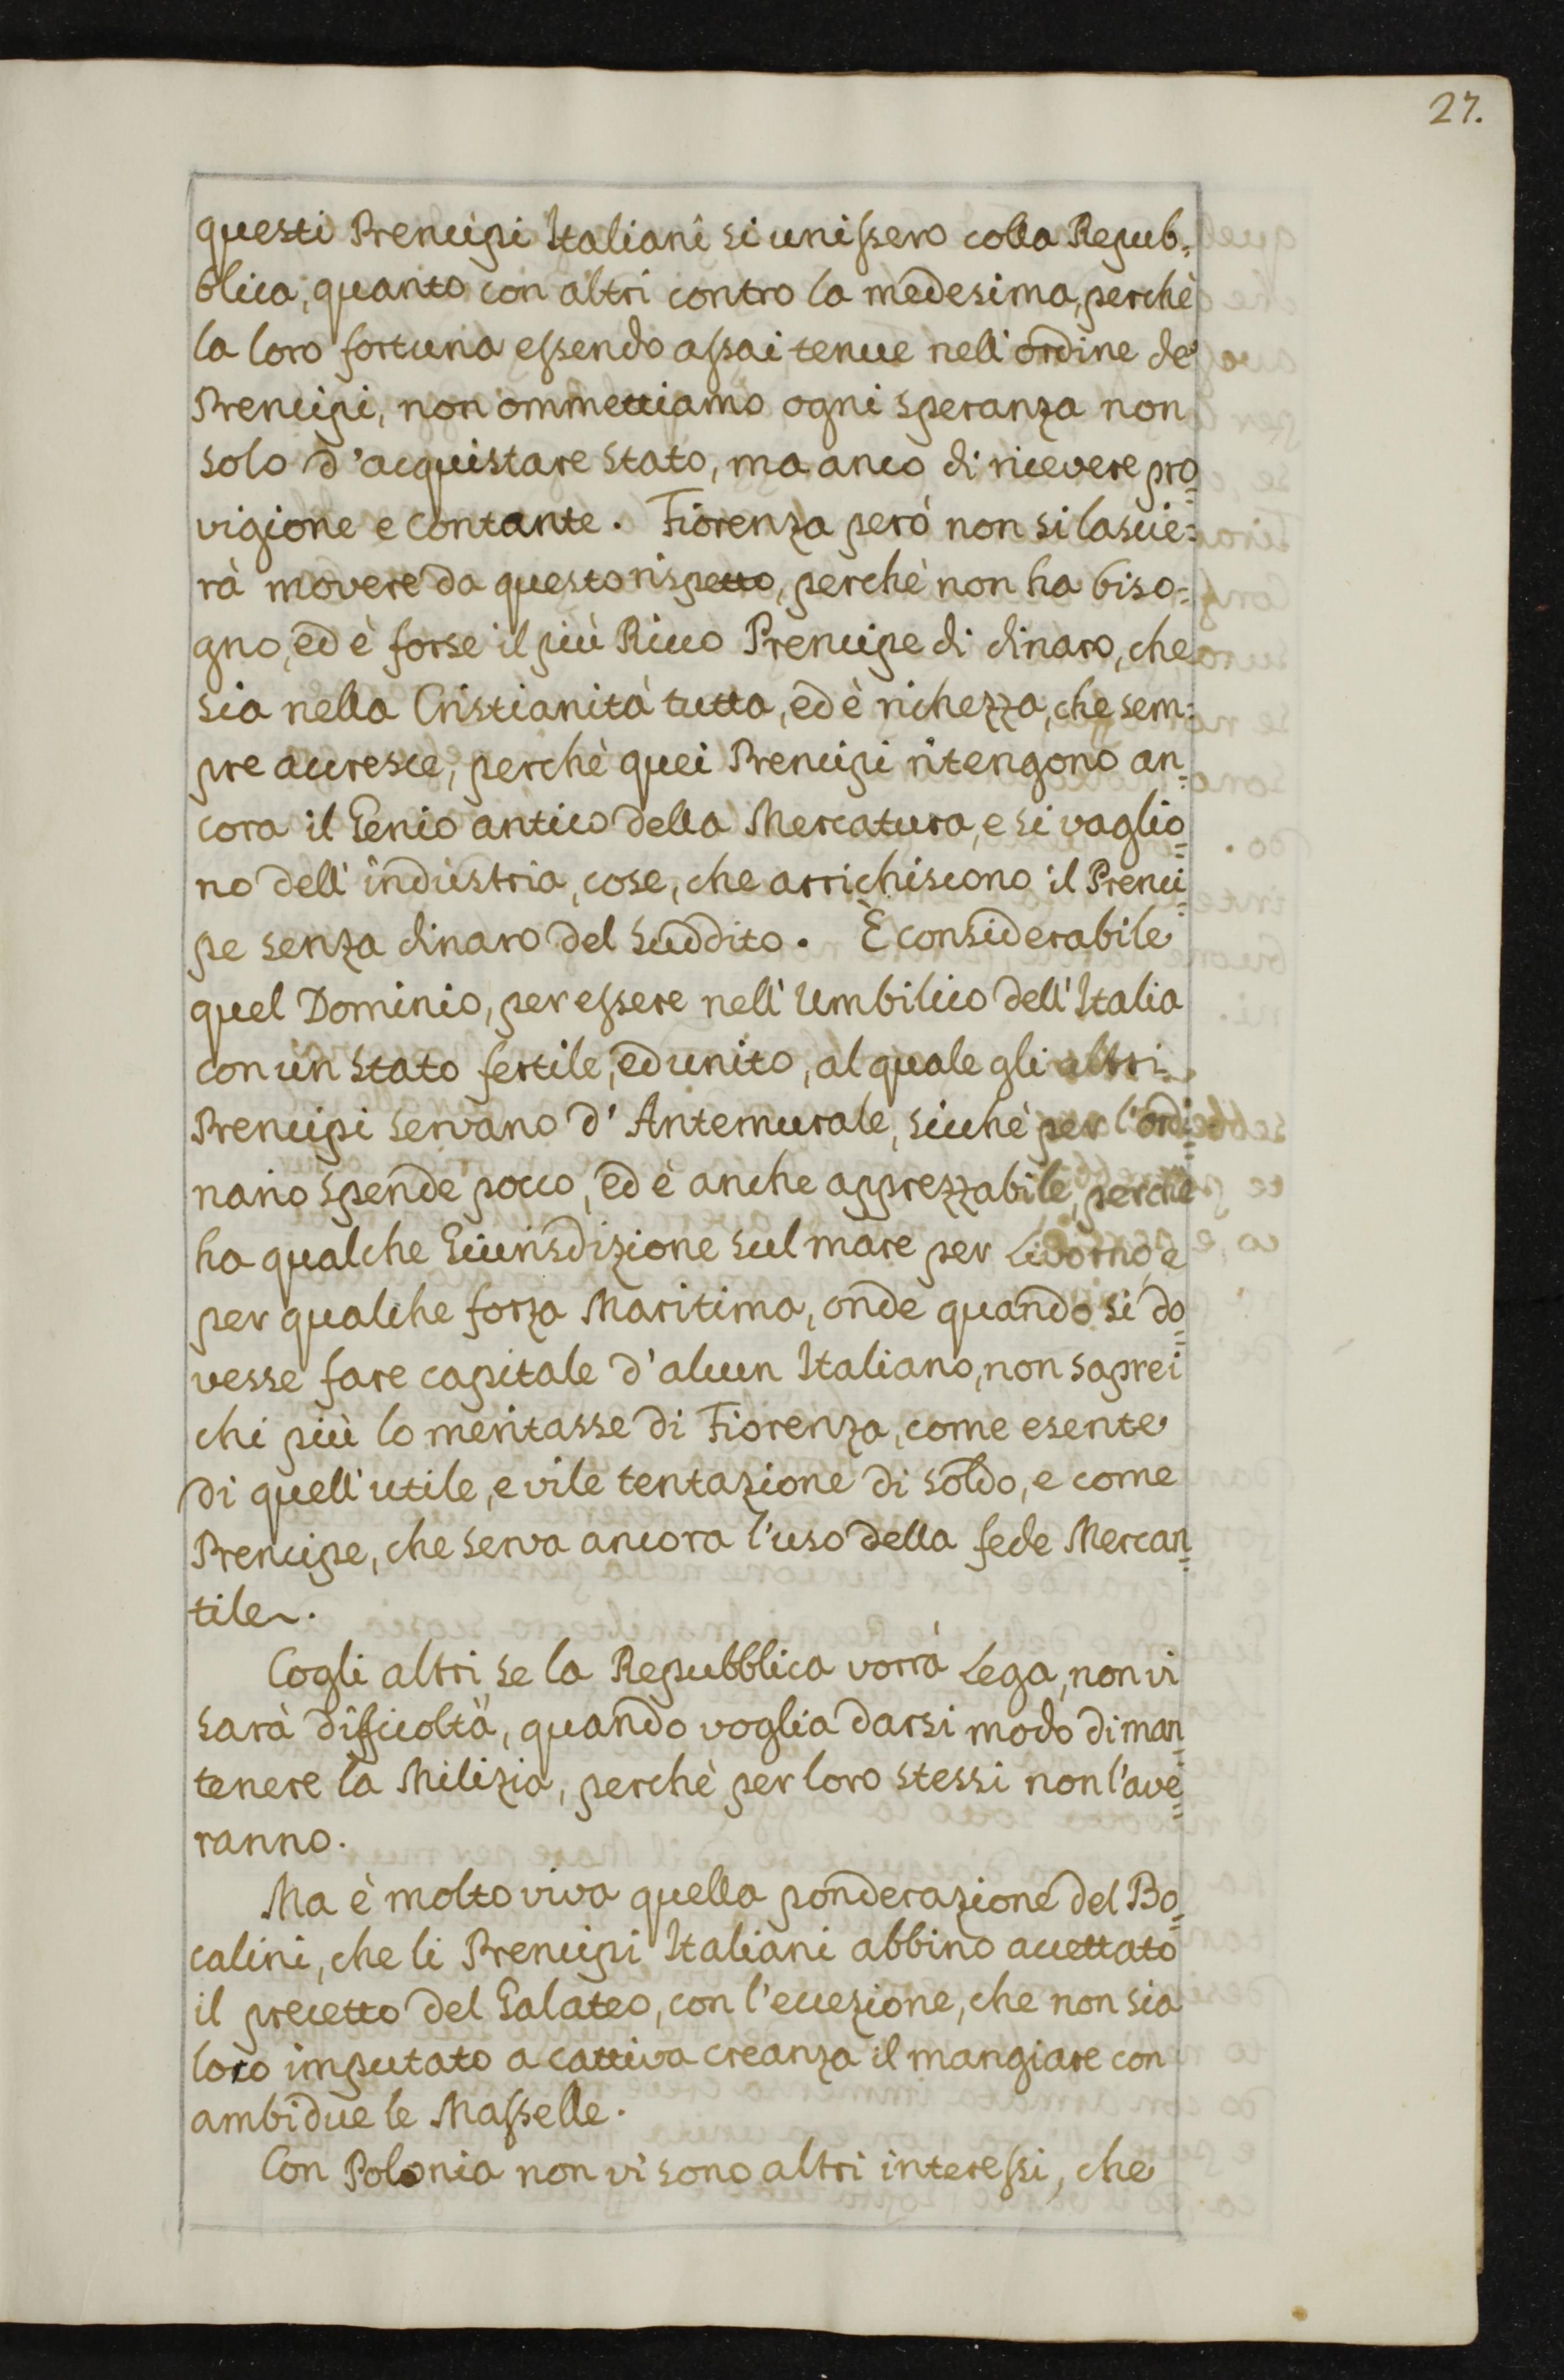 27.
questi Prencipi Italiani si unissero colla Repub=
blica, quanto con altri contro la medesima, perchè
la loro fortuna essendo assai tenue nell'ordine de'
Prencipi, non ommettiamo ogni speranza non
solo d'acquistare Stato, ma anco di ricevere pro=
vigione e contante. Fiorenza però non si lascie=
rà movere da questo rispetto, perchè non ha biso=
gno, ed è forse il più Ricco Prencipe di dinaro, che
sia nella Cristianità tutta, ed è richezza, che sem=
pre accresce, perchè quei Prencipi ritengono an=
cora il Genio antico della Mercatura, e si vaglio=
no dell'industria, cose, che arrichiscono il Prenci=
pe senza dinaro del Suddito. È considerabile
quel Dominio, per essere nell'Umbilico dell'Italia
con un Stato fertile, ed unito, al quale gli altri
Prencipi servano d'Antemurale, sicchè per l'ordi=
nario spende pocco, ed è anche apprezzabile, perchè
ha qualche Giurisdizione sul mare per Livorno, e
per qualche forza Maritima, onde quando si do=
vesse fare capitale d'alcun Italiano, non saprei
chi più lo meritasse di Fiorenza, come esente
di quell'utile, e vile tentazione di soldo, e come
Prencipe, che serva ancora l'uso della fede Mercan=
tile.
Cogli altri, se la Repubblica vorrà Lega, non vi
sarà difficoltà, quando voglia darsi modo di man=
tenere la Milizia, perchè per loro stessi non l'ave=
ranno.
Ma è molto viva quella ponderazione del Bo=
calini, che li Prencipi Italiani abbino accettato
il precetto del Galateo, con l'eccezione, che non sia
loro imputato a cattiva creanza il mangiare con
ambidue le Masselle.
Con Polonia non vi sono altri interessi, che